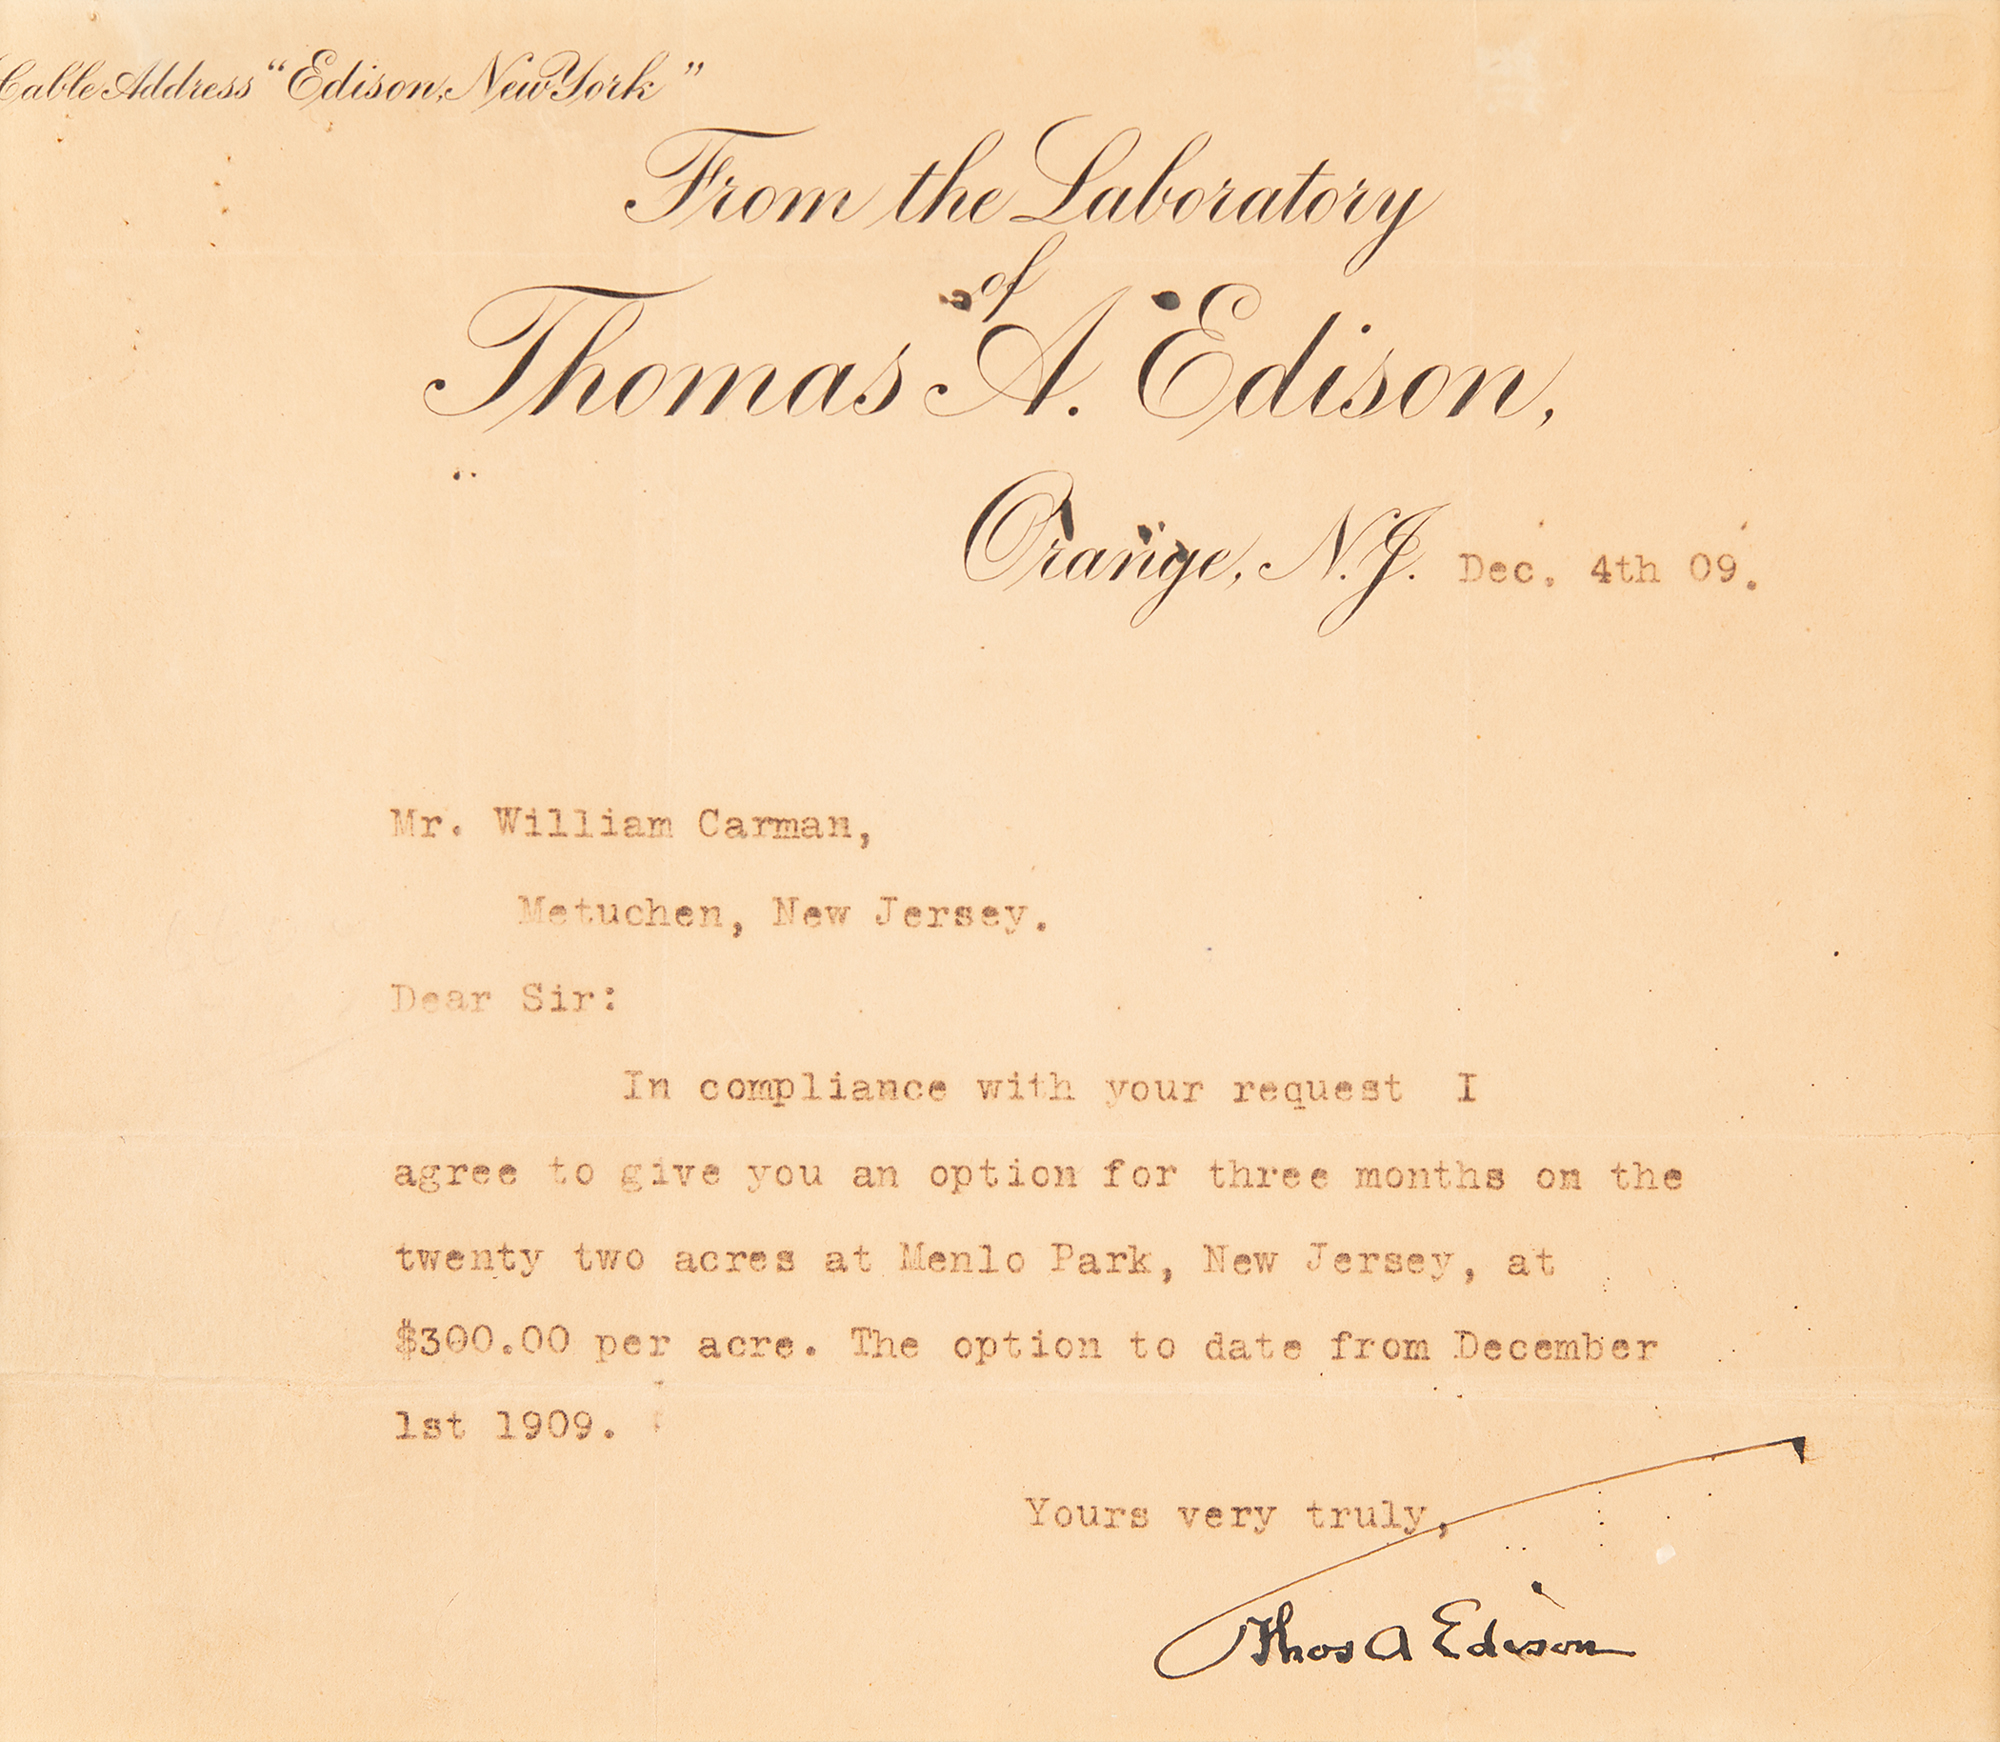 Cable Address "Edison, New York"
From the Laboratory
of
Thomas A. Edison,
Orange, N.J. Dec. 4th 09.
Mr. William Carman,
Metuchen, New Jersey.
Dear Sir:
In compliance with your request I
agree to give you an option for three months on the
twenty two acres at Menlo Park, New Jersey, at
$300.00 per acre. The option to date from December
1st 1909.
Yours very truly,
Thos A Edison